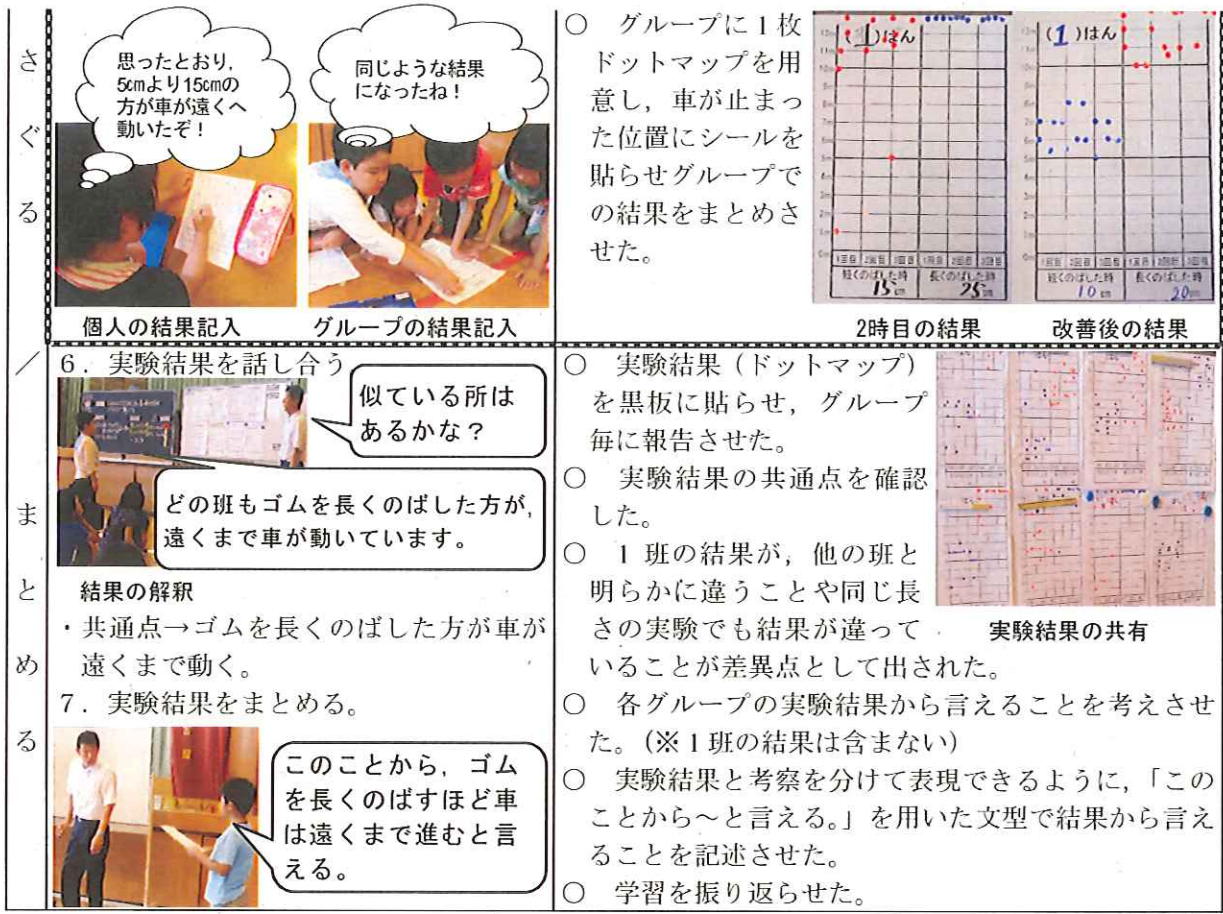 さぐる／まとめる
思ったとおり，
5cmより15cmの
方が車が遠くへ
動いたぞ！
同じような結果
になったね！
個人の結果記入
グループの結果記入
○　グループに１枚
ドットマップを用
意し，車が止まっ
た位置にシールを
貼らせグループで
の結果をまとめさ
せた。
(1)はん
1回目 2回目 3回目 1回目 2回目 3回目
短くのばした時 長くのばした時
15cm 25cm
2時目の結果
(1)はん
1回目 2回目 3回目 1回目 2回目 3回目
短くのばした時 長くのばした時
10cm 20cm
改善後の結果
6．実験結果を話し合う
似ている所は
あるかな？
どの班もゴムを長くのばした方が，
遠くまで車が動いています。
結果の解釈
・共通点→ゴムを長くのばした方が車が
遠くまで動く。
7．実験結果をまとめる。
このことから，ゴム
を長くのばすほど車
は遠くまで進むと言
える。
○　実験結果（ドットマップ）
を黒板に貼らせ，グループ
毎に報告させた。
○　実験結果の共通点を確認
した。
○　1 班の結果が，他の班と
明らかに違うことや同じ長
さの実験でも結果が違って
いることが差異点として出された。
実験結果の共有
○　各グループの実験結果から言えることを考えさせ
た。（※１班の結果は含まない）
○　実験結果と考察を分けて表現できるように，「この
ことから～と言える。」を用いた文型で結果から言え
ることを記述させた。
○　学習を振り返らせた。